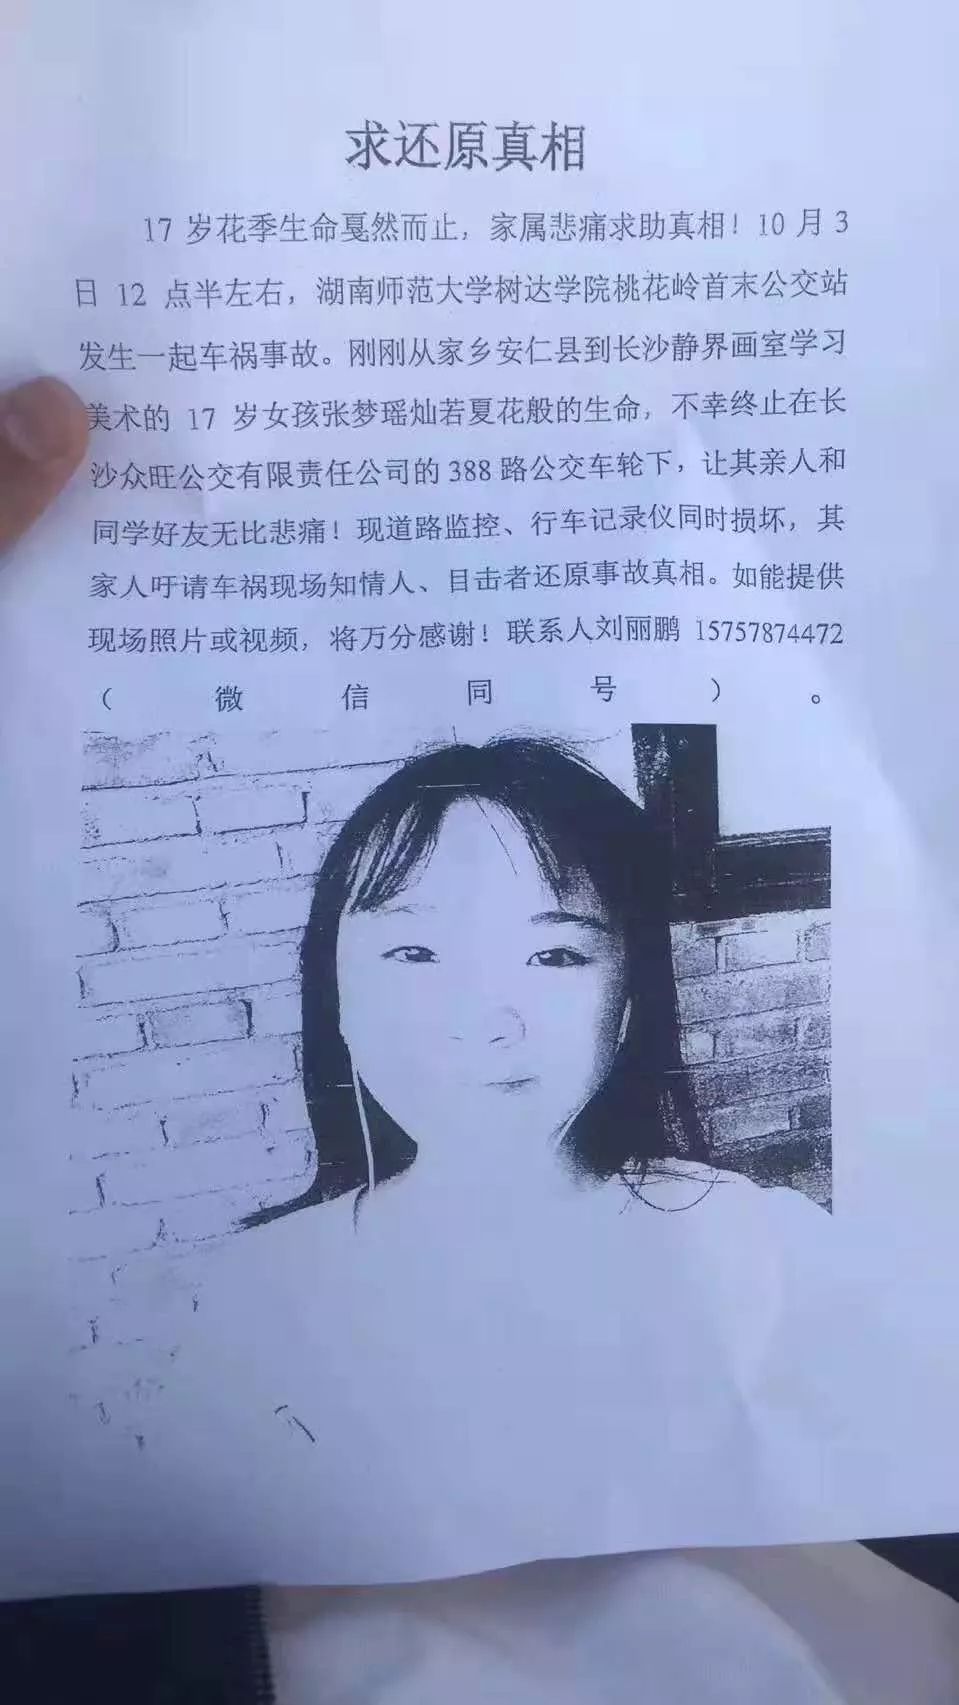 求还原真相
17 岁花季生命戛然而止，家属悲痛求助真相！10 月 3
日 12 点半左右，湖南师范大学树达学院桃花岭首末公交站
发生一起车祸事故。刚刚从家乡安仁县到长沙静界画室学习
美术的 17 岁女孩张梦瑶灿若夏花般的生命，不幸终止在长
沙众旺公交有限责任公司的 388 路公交车轮下，让其亲人和
同学好友无比悲痛！现道路监控、行车记录仪同时损坏，其
家人吁请车祸现场知情人、目击者还原事故真相。如能提供
现场照片或视频，将万分感谢！联系人刘丽鹏 15757874472
（微信同号）。